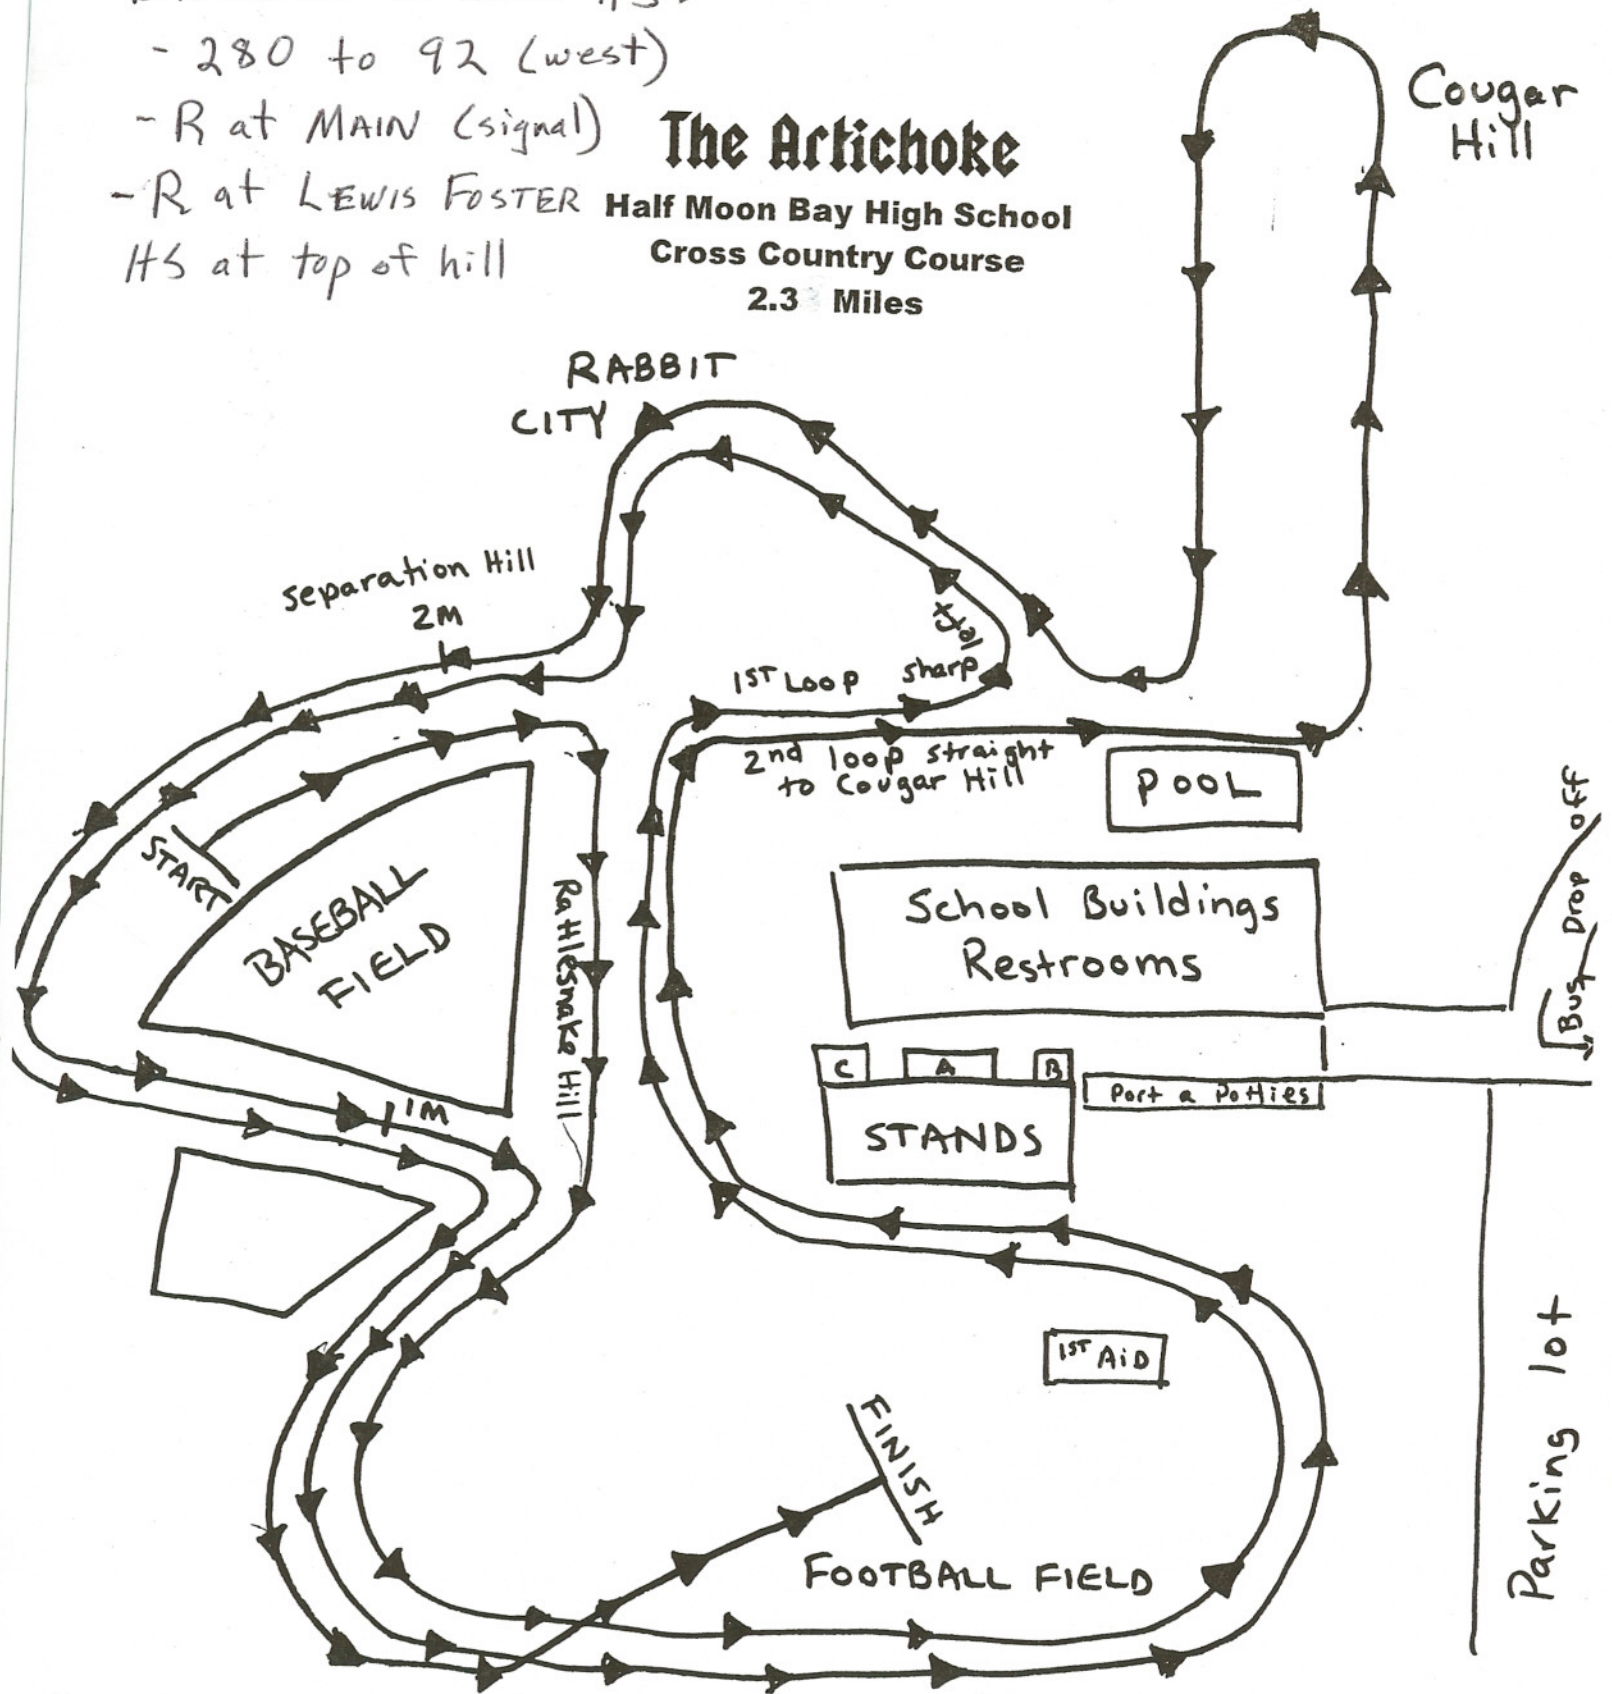 - 280 to 92 (west)
- R at MAIN (signal)
- R at LEWIS FOSTER
HS at top of hill
The Artichoke
Half Moon Bay High School
Cross Country Course
2.3 Miles
Cougar
Hill
RABBIT
CITY
separation Hill
2M
1ST LOOP
sharp
left
2nd loop straight
to Cougar Hill
POOL
START
BASEBALL
FIELD
Rattlesnake Hill
School Buildings
Restrooms
Bus Drop off
C
A
B
Port a Potties
STANDS
1M
1ST AiD
FINISH
FOOTBALL FIELD
Parking lot